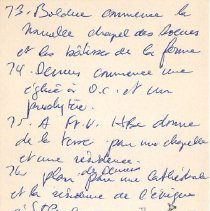 73. Bolduc commence la
nouvelle chapel des soeurs
et les bâtisses de la ferme
74. Demers commence une
église à O.C. et un
presbytère.
75. A Ft. V. HBC donne
de la terre pour une chapelle
et une résidence.
76. plan de Demers pour une cathédrale
et la résidence de l'évêque